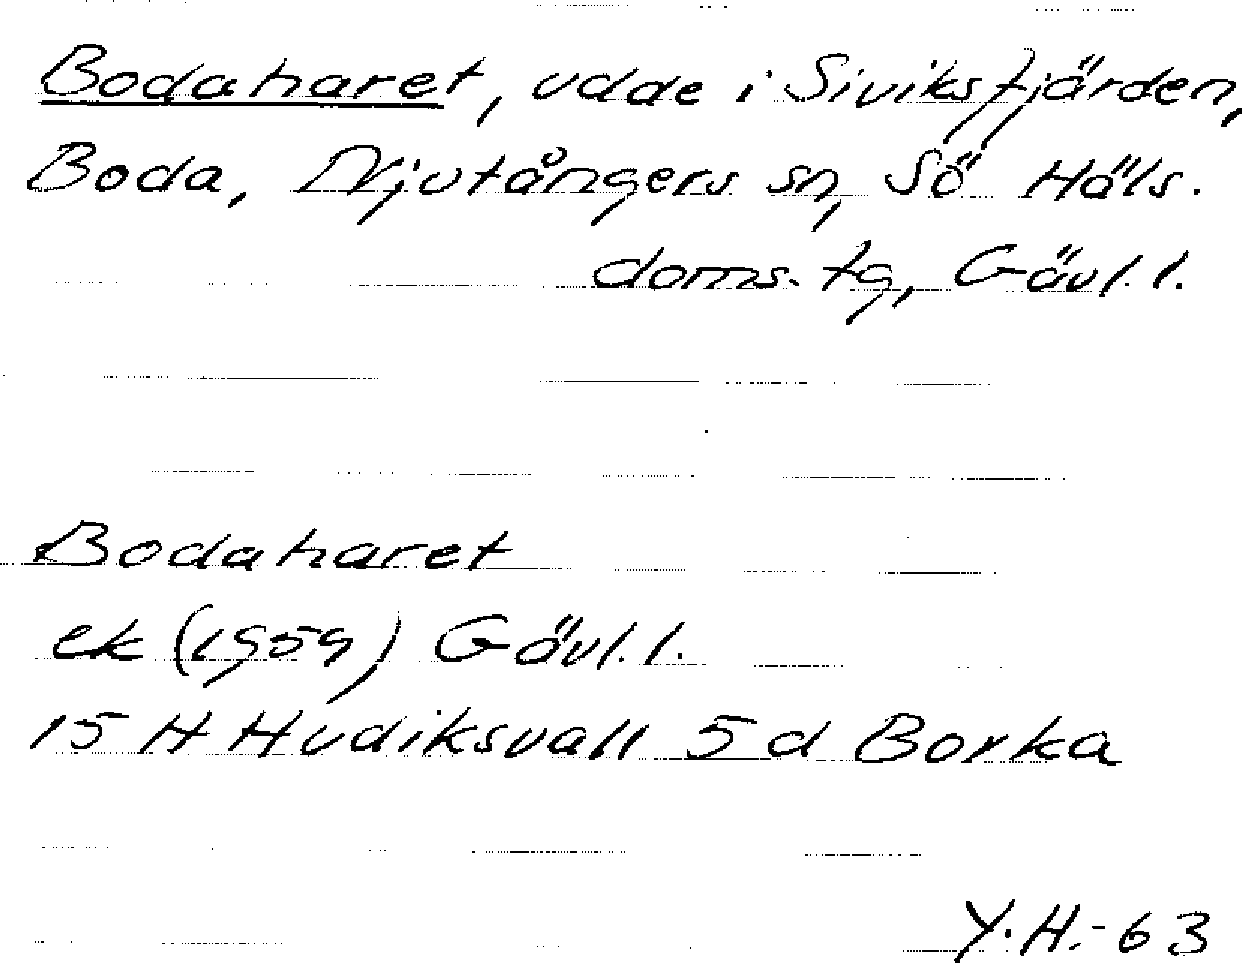 Bodaharet, udde i Siviksfjärden,
Boda, Njutångers sn, Sö Häls.
doms. tg, Gävl. l.
Bodaharet
ek (1959) Gävl. l.
15 H Hudiksvall 5 d Borka
Y.H.-63